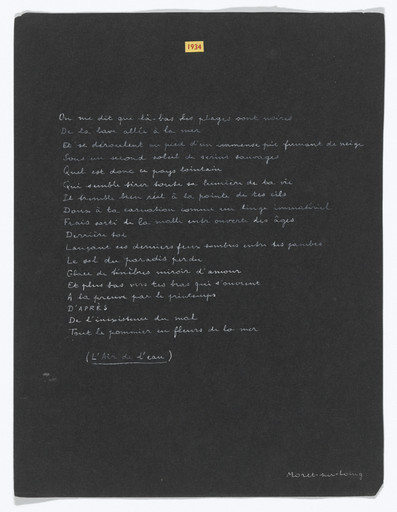 1934
On me dit que là-bas les plages sont noires
De la lave allée à la mer
Et se déroulent au pied d'un immense pic fumant de neige
Sous un second soleil de serins sauvages
Quel est donc ce pays lointain
Qui semble tirer toute sa lumière de ta vie
Il tremble bien réel à la pointe de tes cils
Doux à ta carnation comme un linge immatériel
Frais sorti de la malle entr'ouverte des âges
Derrière toi
Lançant ses derniers feux sombres entre tes jambes
Le sol du paradis perdu
Glace de ténèbres miroir d'amour
Et plus bas vers tes bras qui s'ouvrent
A la preuve par le printemps
D'APRÈS
De l'inexistence du mal
Tout le pommier en fleurs de la mer
(L'Air de l'eau)
Moret-sur-Loing